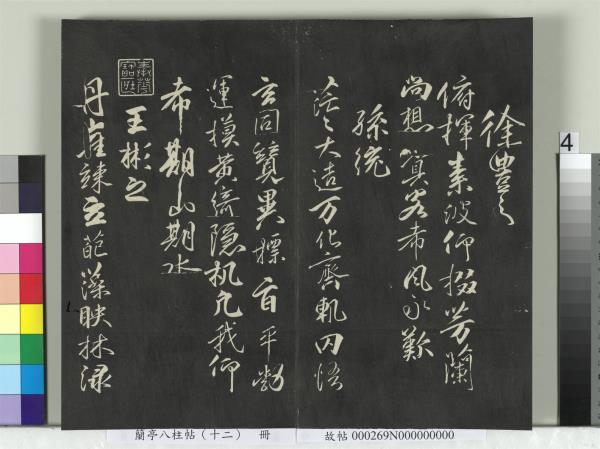 徐豊之
俯揮素波仰掇芳蘭
尚想冥客希风永歎
孫統
茫〻大造万化齊軌罔悟
玄同競異標旨平勃
運模黃綺隱机凡我仰
希期山期水
王彬之
丹崖竦立葩藻映林淥
4
蘭亭八柱帖（十二） 冊
故帖 000269N000000000